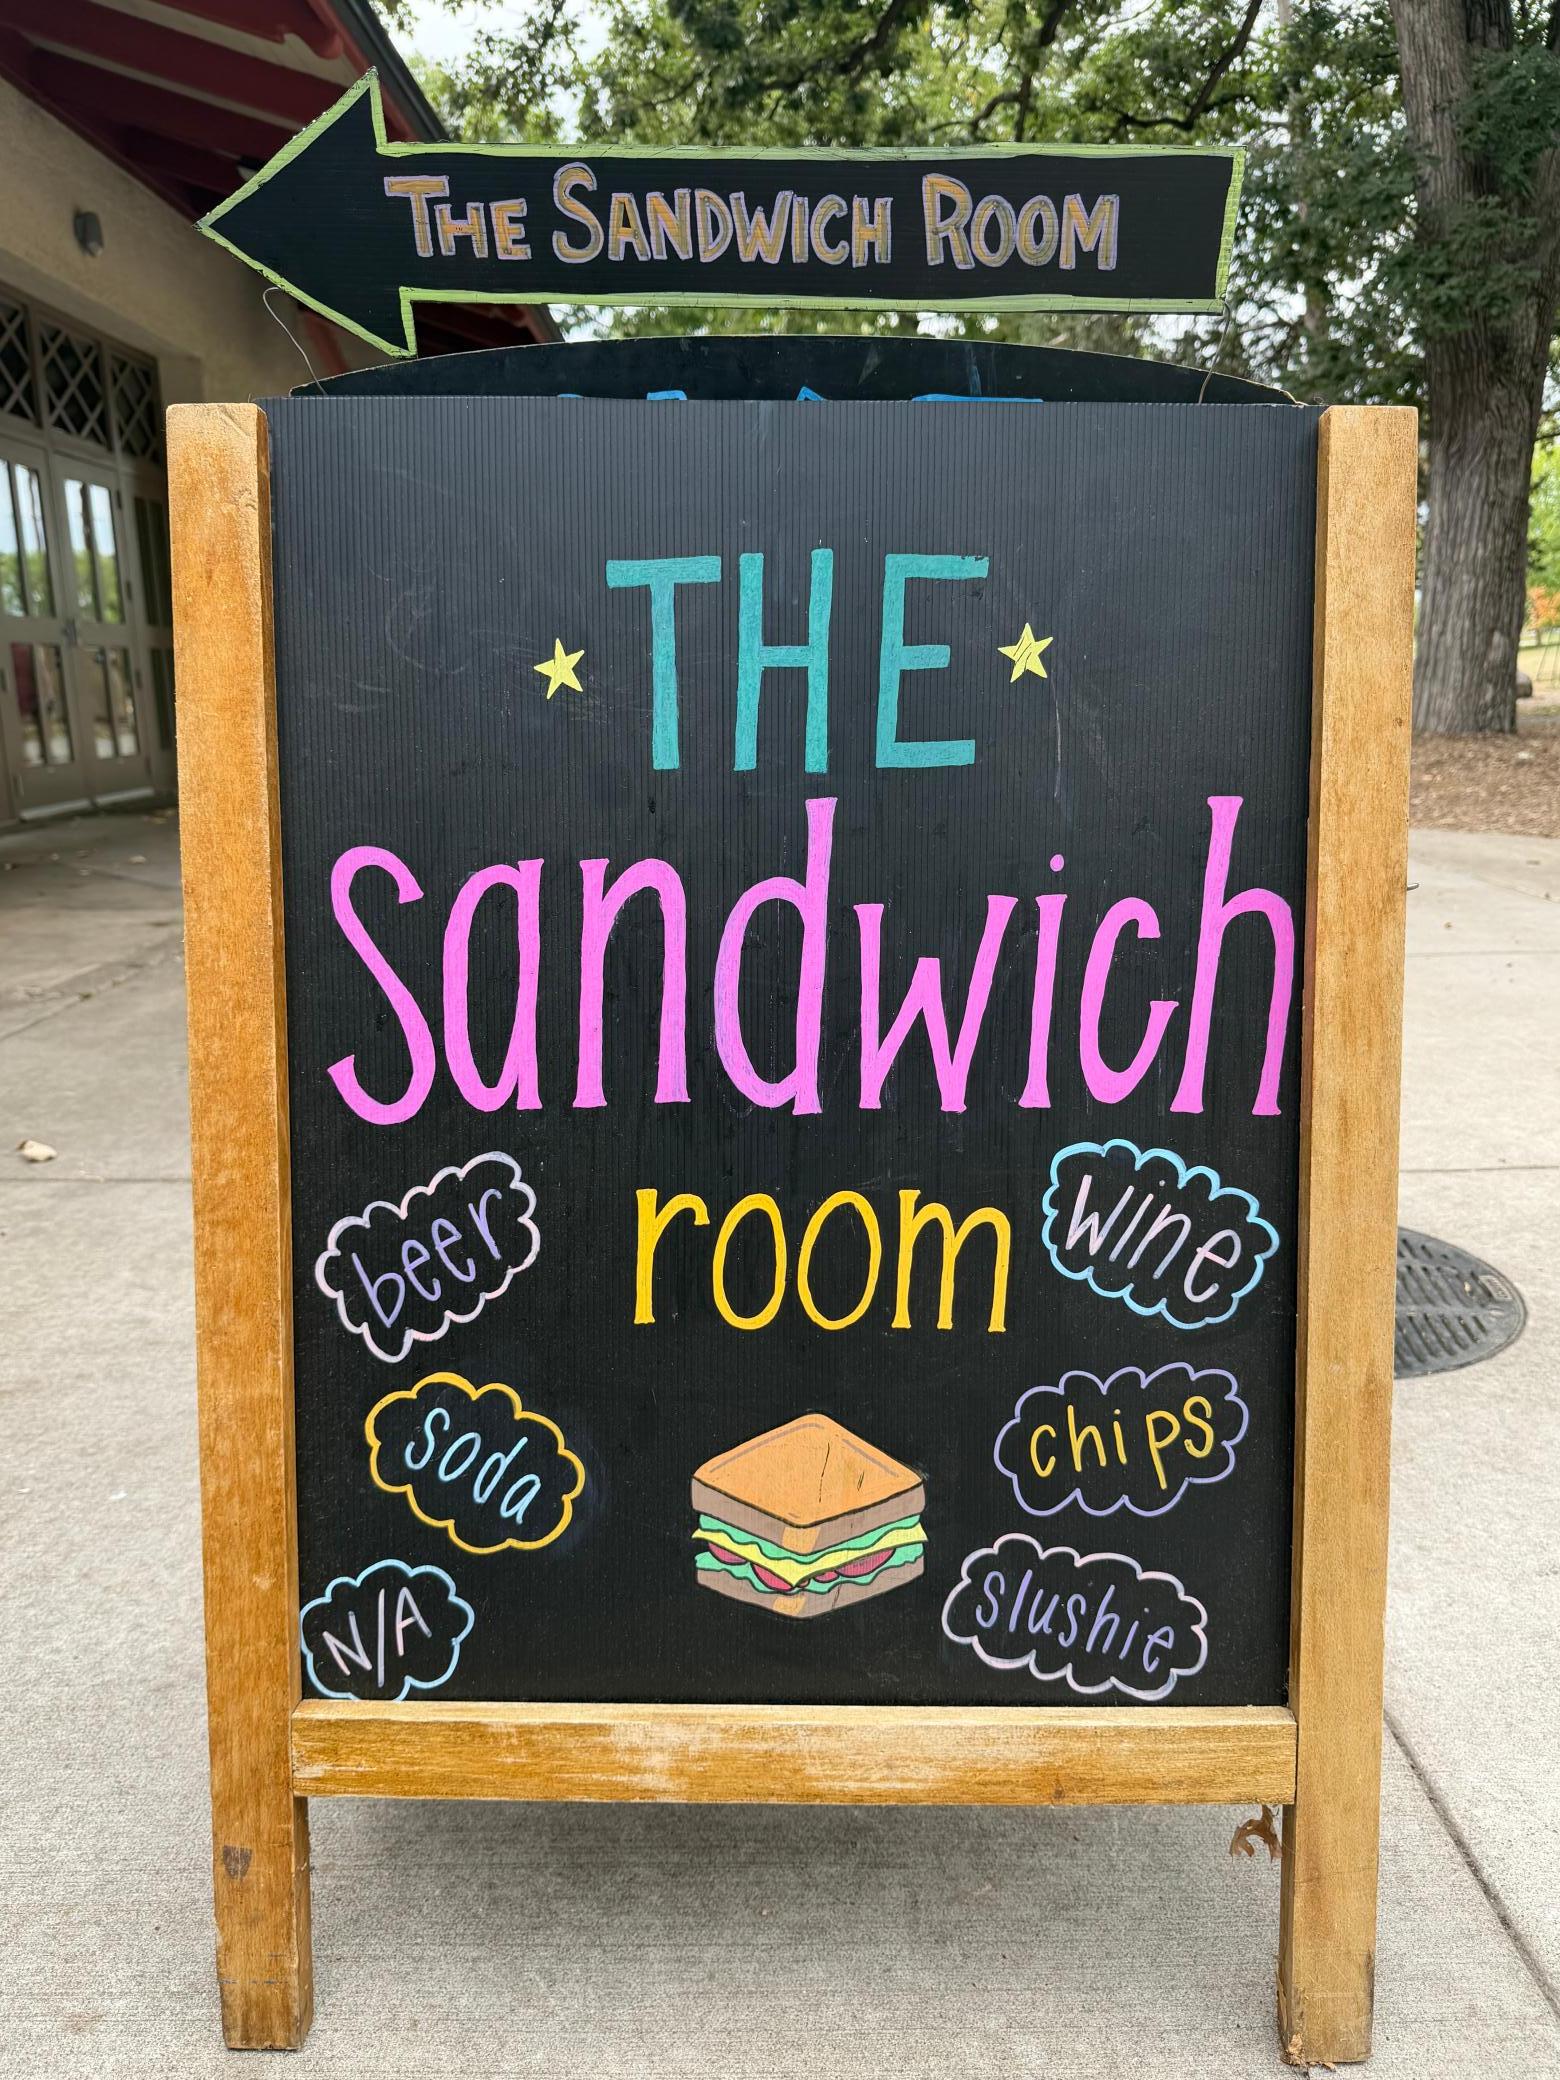 THE SANDWICH ROOM
THE
sandwich
room
beer
wine
soda
chips
N/A
slushie